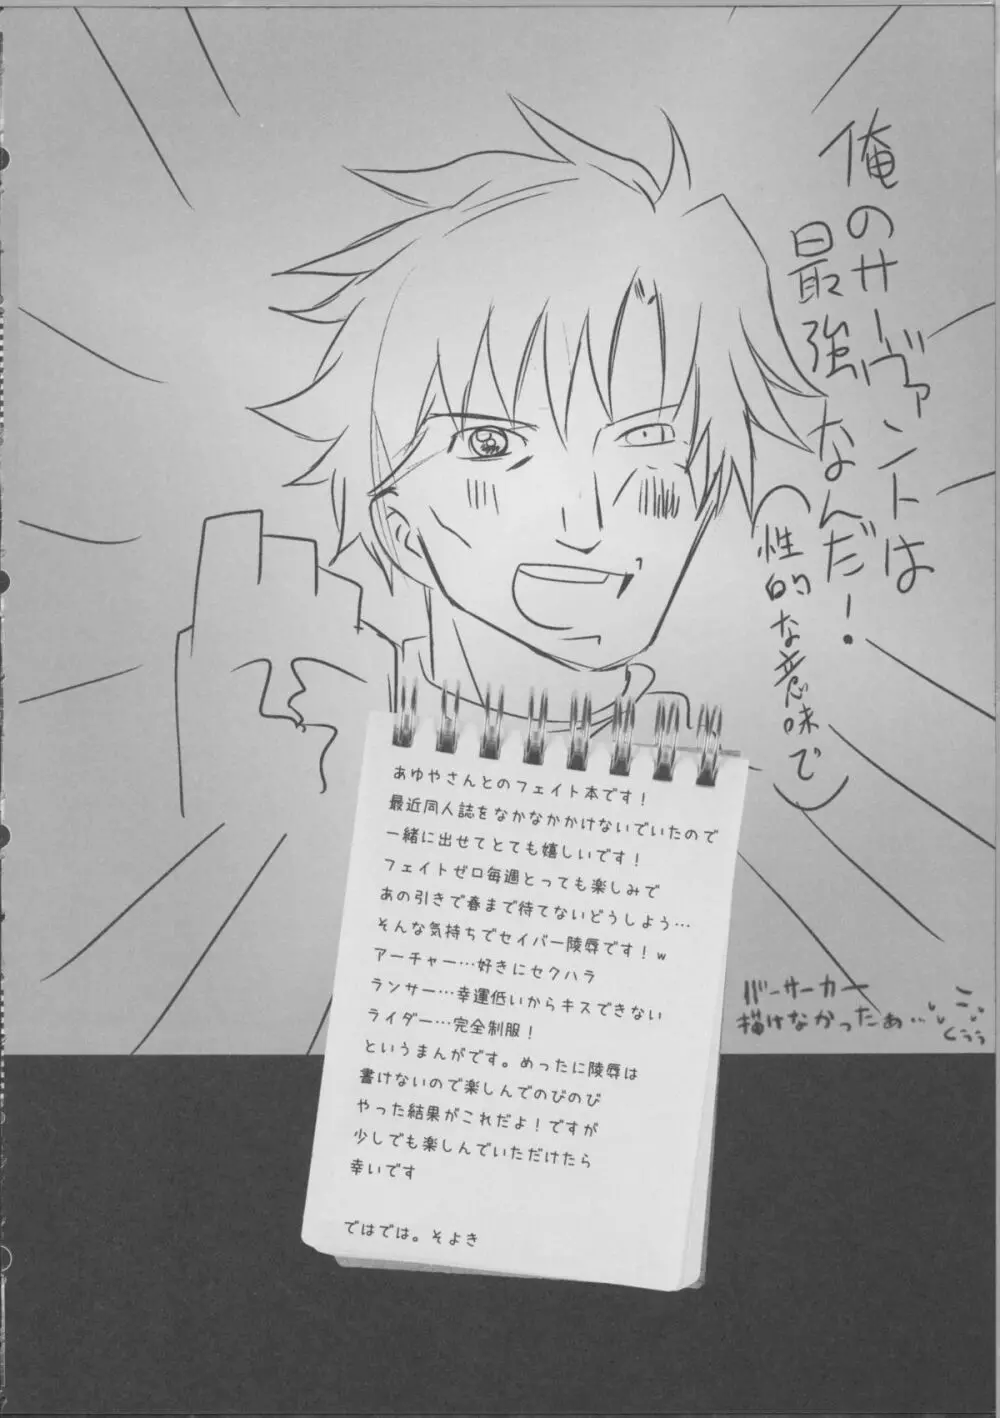 俺のサーヴァントは
最強なんだ!
(性的な意味で)
あゆやさんとのフェイト本です!
最近同人誌をなかなかかけないでいたので
一緒に出せてとても嬉しいです!
フェイトゼロ毎週とっても楽しみで
あの引きで春まで待てないどうしよう…
そんな気持ちでセイバー陵辱です!w
アーチャー…好きにセクハラ
ランサー…幸運低いからキスできない
ライダー…完全制服!
というまんがです。めったに陵辱は
書けないので楽しんでのびのび
やった結果がこれだよ!ですが
少しでも楽しんでいただけたら
幸いです
ではでは。そよき
バーサーカー
描けなかったぁ…
くぅぅ